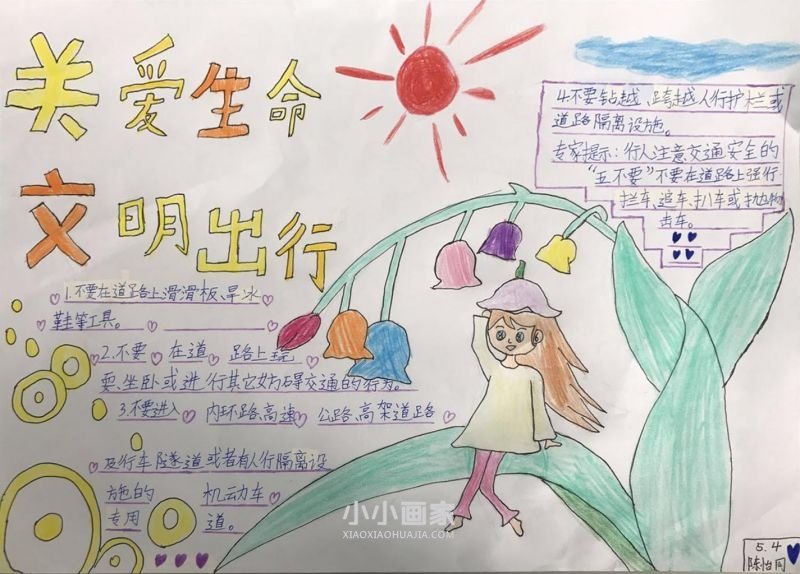 关爱生命
文明出行
1.不要在道路上滑滑板、旱冰
鞋等工具。
2.不要 在道 路上玩
耍、坐卧或进行其它妨碍交通的行为。
3.不要进入 内环路、高速 公路、高架道路
及行车隧道或者有人行隔离设
施的 机动车
专用 道。
4.不要钻越、跨越人行护栏或
道路隔离设施。
专家提示：行人注意交通安全的
“五不要”不要在道路上强行
拦车、追车、扒车或抛物
击车。
小小画家
XIAOXIAOHUAJIA.COM
5.4
陈怡同